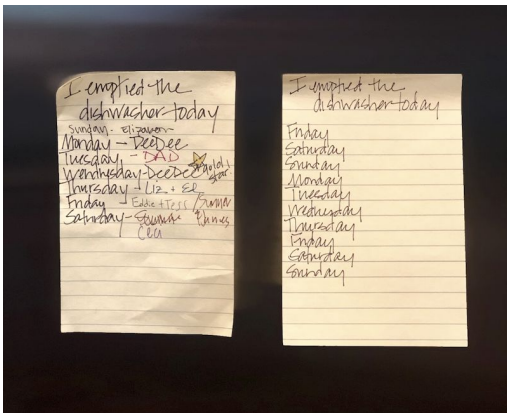 I emptied the
dishwasher today
Sunday - Elizabeth
Monday - DeeDee
Tuesday - DAD
Wednesday - DeeDee gold star
Thursday - Liz + El
Friday - Eddie + Tess
Saturday -
Cece
I emptied the
dishwasher today
Friday
Saturday
Sunday
Monday
Tuesday
Wednesday
Thursday
Friday
Saturday
Sunday